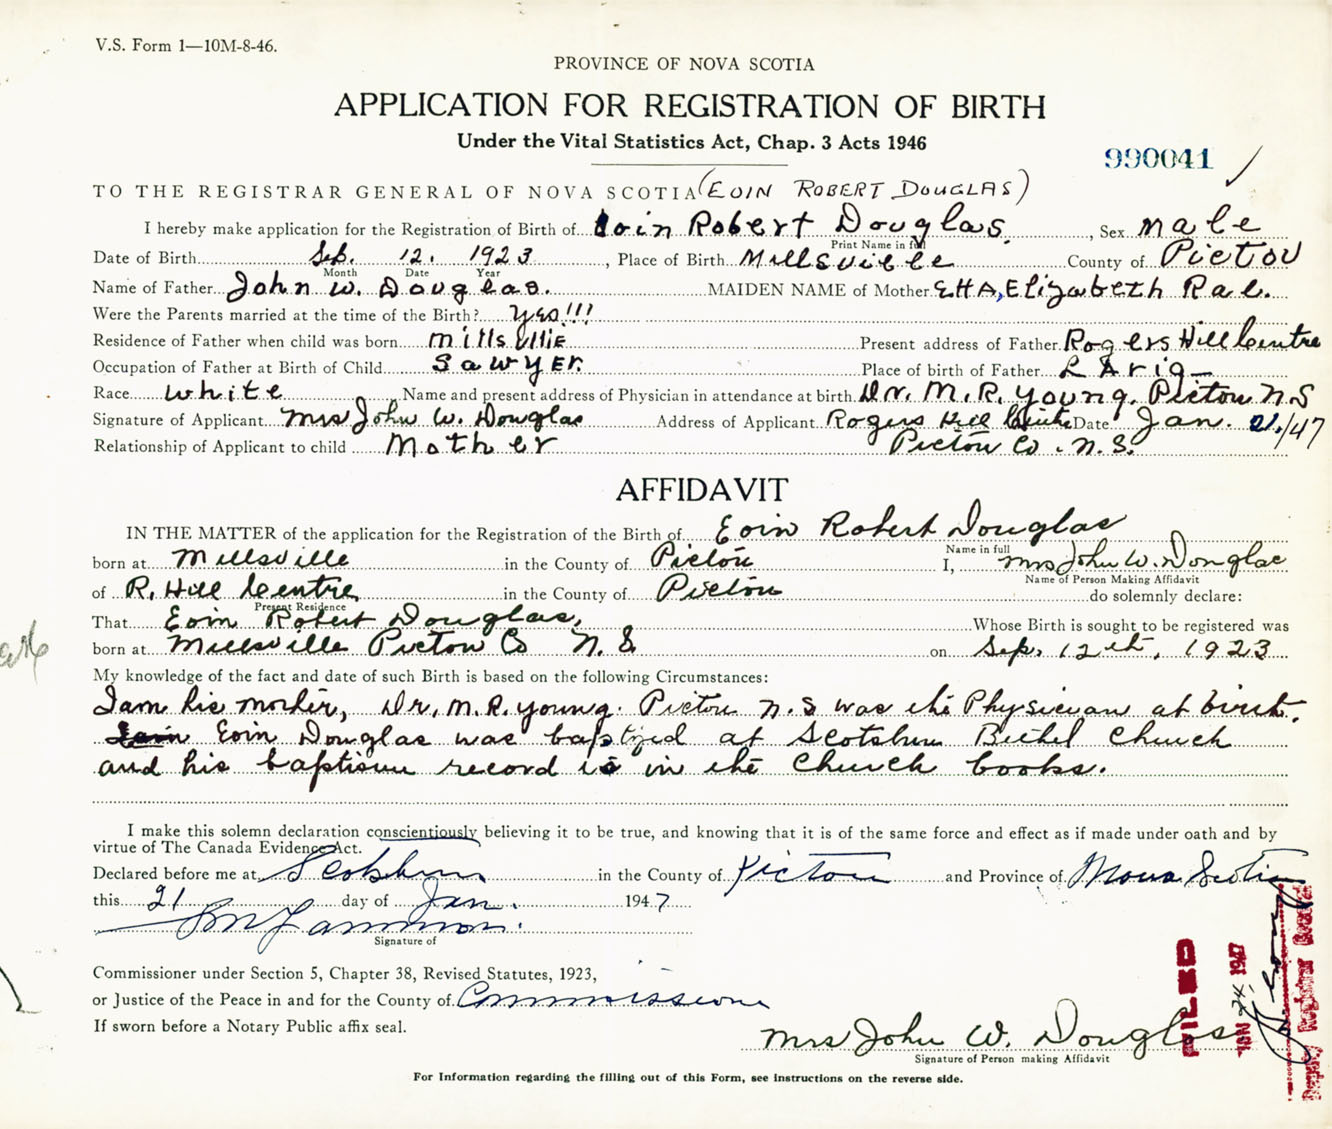 V.S. Form 1—10M-8-46.
PROVINCE OF NOVA SCOTIA
APPLICATION FOR REGISTRATION OF BIRTH
Under the Vital Statistics Act, Chap. 3 Acts 1946
990041
TO THE REGISTRAR GENERAL OF NOVA SCOTIA (EOIN ROBERT DOUGLAS)
I hereby make application for the Registration of Birth of Eoin Robert Douglas, Sex male
Print Name in full
Date of Birth Sep. 12. 1923, Place of Birth Millsville County of Pictou
Month Date Year
Name of Father John W. Douglas. MAIDEN NAME of Mother Etta, Elizabeth Rae.
Were the Parents married at the time of the Birth? Yes!!!
Residence of Father when child was born Present address of Father Rogers Hill Centre
Occupation of Father at Birth of Child Sawyer. Place of birth of Father
Race White Name and present address of Physician in attendance at birth Dr. M. R. Young. Pictou N.S
Signature of Applicant Mrs John W. Douglas Address of Applicant Rogers Hill Centre Date Jan. 21./47
Relationship of Applicant to child Mother Pictou Co. N.S.
AFFIDAVIT
IN THE MATTER of the application for the Registration of the Birth of Eoin Robert Douglas
Name in full
born at Millsville in the County of Pictou I, Mrs John W. Douglas
Name of Person Making Affidavit
of R. Hill Centre in the County of Pictou do solemnly declare:
Present Residence
That Eoin Robert Douglas, Whose Birth is sought to be registered was
born at Millsville Pictou Co N.S on Sep. 12th, 1923
My knowledge of the fact and date of such Birth is based on the following Circumstances:
I am his mother, Dr. M. R. Young. Pictou N.S was the Physician at birth.
Eoin Douglas was baptized at Scotsburn Bethel Church
and his baptism record is in the Church books.
I make this solemn declaration conscientiously believing it to be true, and knowing that it is of the same force and effect as if made under oath and by
virtue of The Canada Evidence Act.
Declared before me at Scotsburn in the County of Pictou and Province of Nova Scotia
this 21 day of Jan. 1947
Signature of
Commissioner under Section 5, Chapter 38, Revised Statutes, 1923,
or Justice of the Peace in and for the County of Commissioner
If sworn before a Notary Public affix seal.
Mrs John W. Douglas
Signature of Person making Affidavit
For Information regarding the filling out of this Form, see instructions on the reverse side.
FILED
JAN 24 1947
Deputy Registrar General